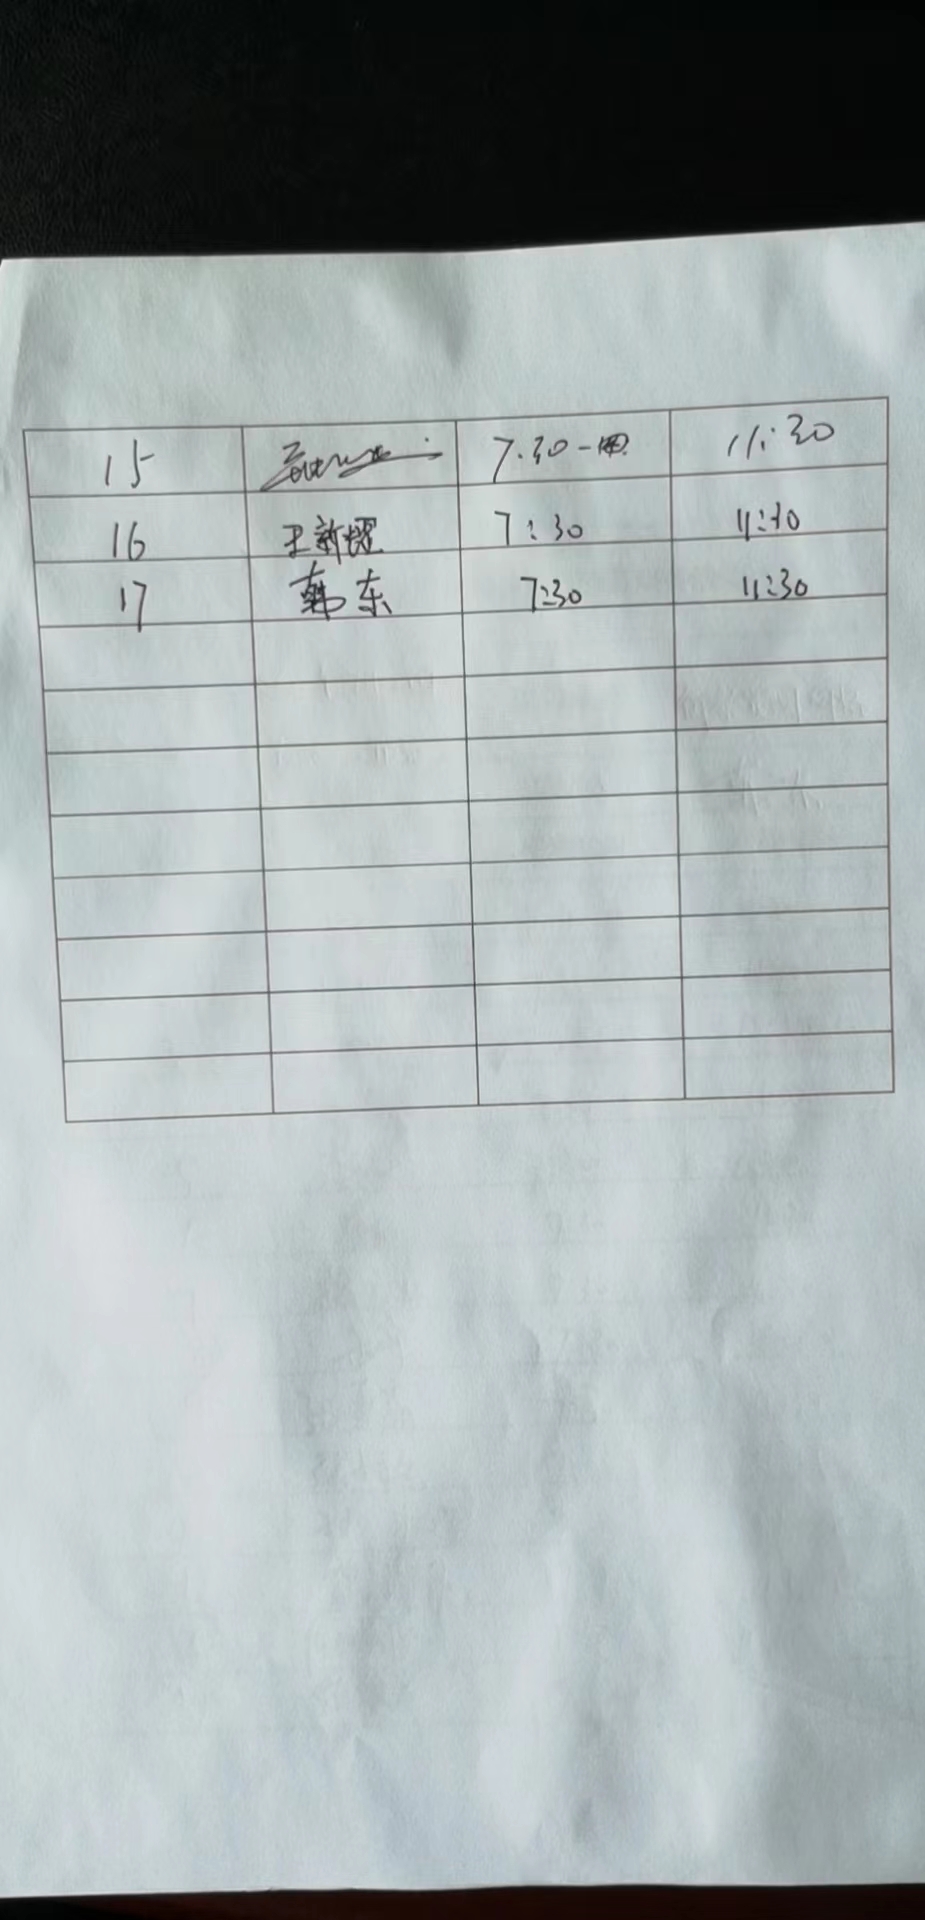 15 7:30 11:30
16 王新耀 7:30 11:30
17 韩东 7:30 11:30